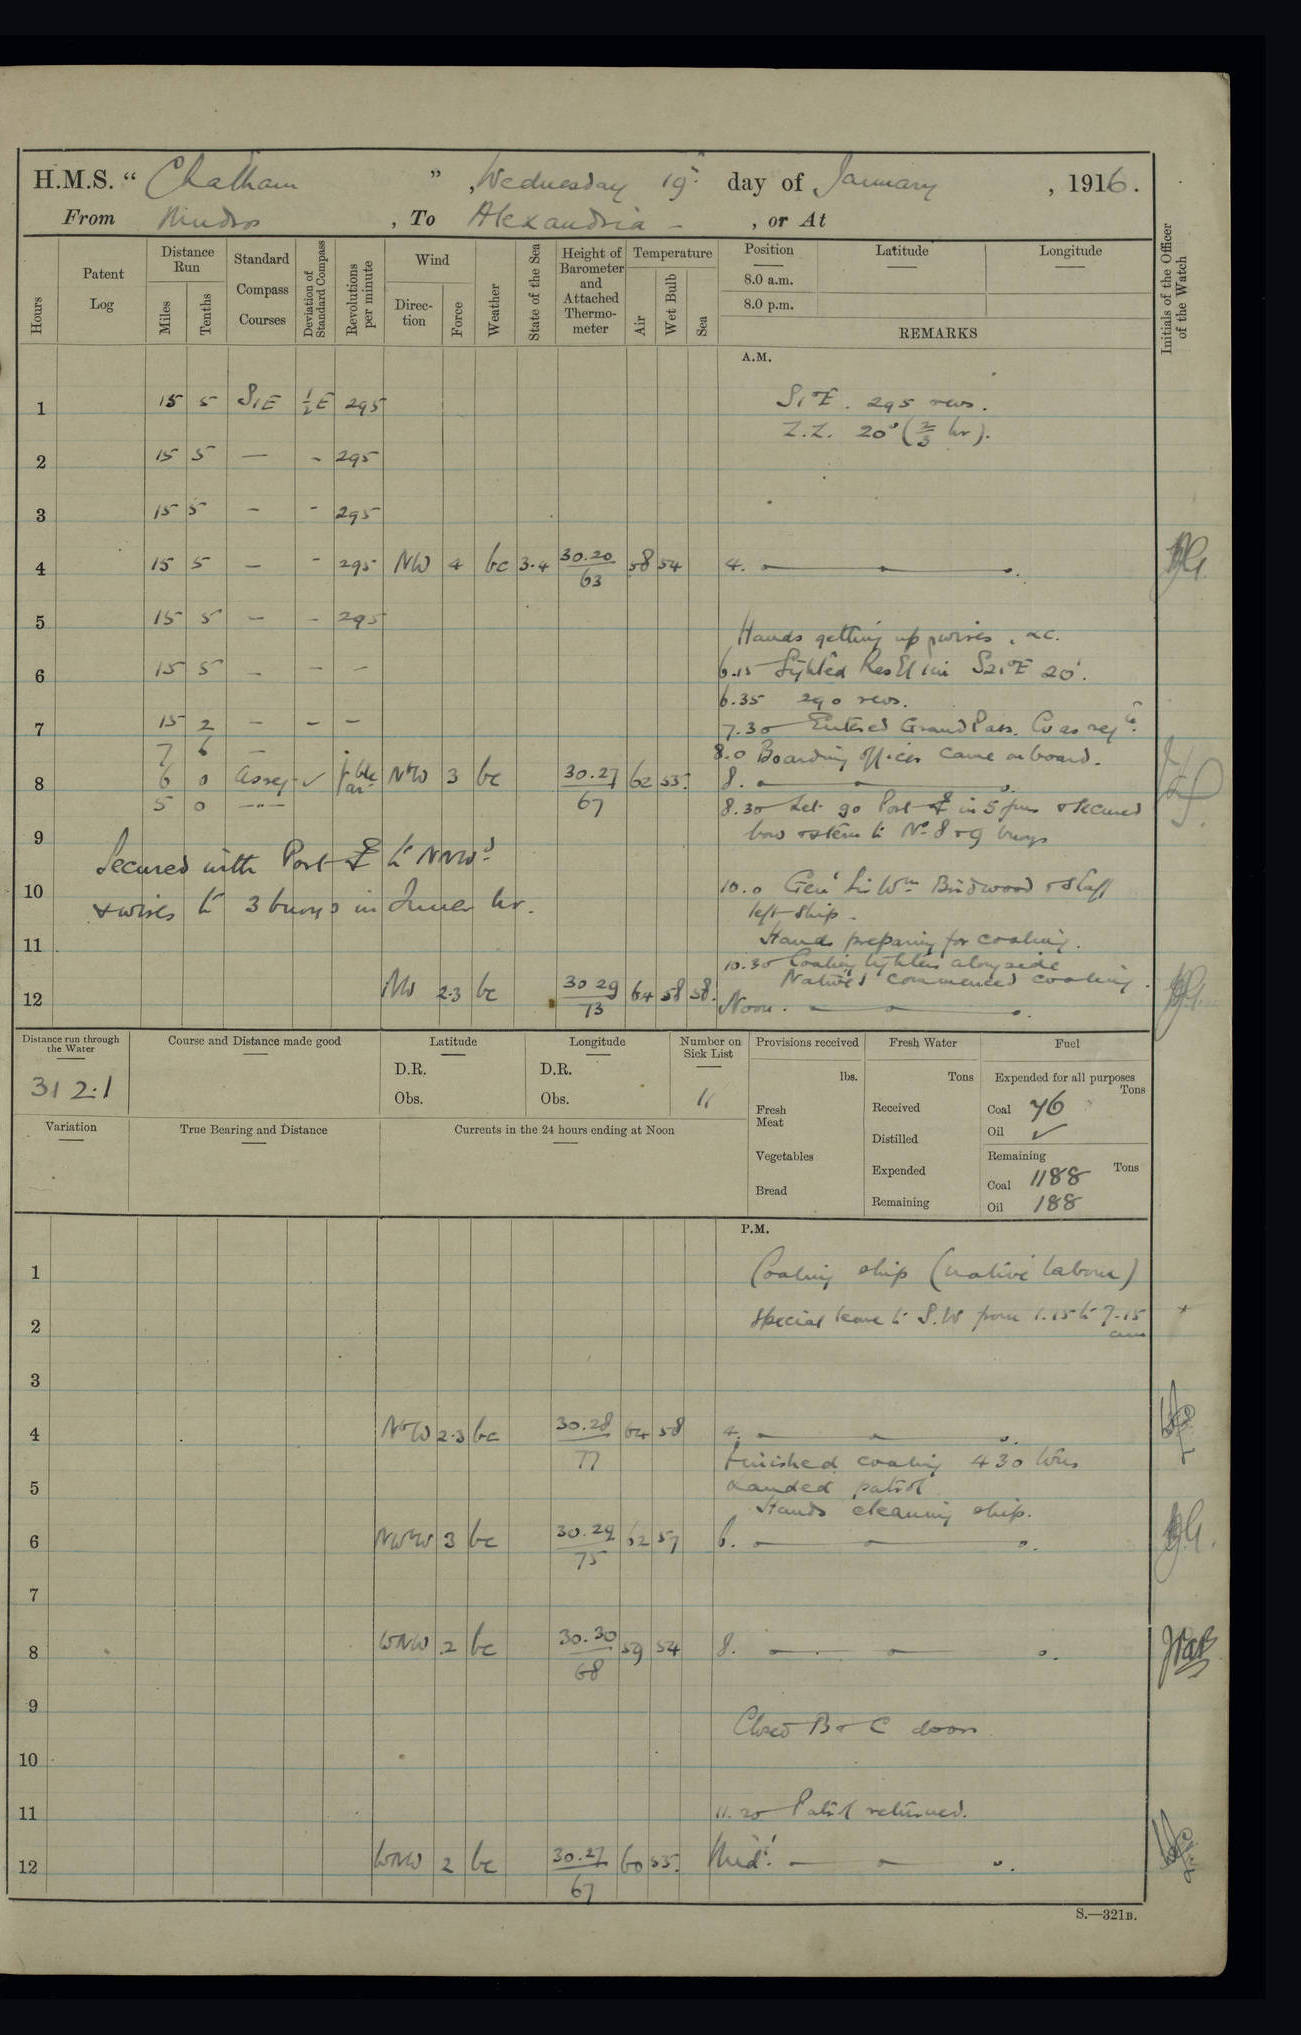 H.M.S. “ Chatham ” , Wednesday 19th day of January , 1916.
From Mudros , To Alexandria – , or At
Hours
Patent Log
Distance Run
Miles
Tenths
Standard Compass Courses
Deviation of Standard Compass
Revolutions per minute
Wind
Direction
Force
Weather
State of the Sea
Height of Barometer and Attached Thermometer
Temperature
Air
Wet Bulb
Sea
Position
8.0 a.m.
8.0 p.m.
Latitude
Longitude
REMARKS
Initials of the Officer of the Watch
A.M.
1 15 5 S1E ½E 295 S1°E . 295 revs.
Z.Z. 20° (2/3 hr).
2 15 5 — - 295
3 15 5 — - 295
4 15 5 — - 295 NW 4 bc 3.4 30.20/63 58 54 4.
5 15 5 — - 295
Hands getting up wires, &c.
6 15 5 — — — 6.15 Sighted Ras El Tin S21°E 20'.
6.35 290 revs.
7 15 2 — — — 7.30 Entered Grand Pass. Co as reqte.
7 6 — 8.0 Boarding officer came onboard.
8 6 0 as req ✓ NW 3 bc 30.27/67 62 55. 8.
5 0 —"— 8.30 Let go Port in 5 fms & secured
9 bow & stern to No 8 & 9 buoys
Secured with Port to NNWd
10 & wires to 3 buoys in Inner hr.
10.0 Genl Sir Wm Birdwood & Staff
left ship.
11 Hands preparing for coaling.
10.30 Coaling lighters alongside
Natives commenced coaling.
12 NW 2.3 bc 30 29/73 64 58 58. Noon.
Distance run through the Water
312.1
Course and Distance made good
Latitude
D.R.
Obs.
Longitude
D.R.
Obs.
Number on Sick List
11
Provisions received
lbs.
Fresh Meat
Vegetables
Bread
Fresh Water
Tons
Received
Distilled
Expended
Remaining
Fuel
Expended for all purposes
Tons
Coal 76
Oil ✓
Remaining
Tons
Coal 1188
Oil 188
Variation
True Bearing and Distance
Currents in the 24 hours ending at Noon
P.M.
1 Coaling ship (native labour)
2 Special leave to S.W from 1.15 to 7.15
am
3
4 NW 2.3 bc 30.28/77 64 58 4.
Finished coaling 430 tons
5 Landed patrol
Hands cleaning ship.
6 NWW 3 bc 30.29/75 62 57 6.
7
8 WNW 2 bc 30.30/68 59 54 8.
9 Closed B & C doors
10
11 11.20 Patrol returned.
12 WNW 2 bc 30.27/67 60 55. Midt.
S.—321B.